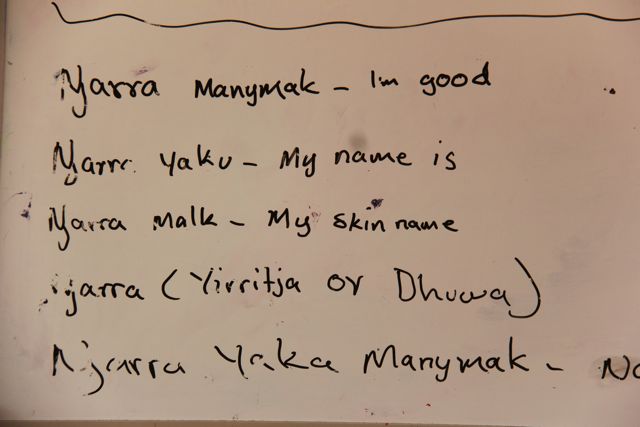 Ŋarra Manymak – I'm good
Ŋarra yaku – My name is
Ŋarra Malk – My skin name
Ŋarra (Yirritja or Dhuwa)
Ŋarra Yaka Manymak –